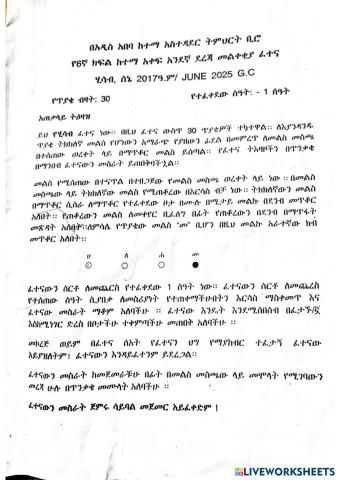 በአዲስ አበባ ከተማ አስተዳደር ትምህርት ቢሮ
የ6ኛ ክፍል ከተማ አቀፍ አንደኛ ደረጃ መልቀቂያ ፈተና
ሂሳብ, ሰኔ 2017ዓ.ም/ JUNE 2025 G.C
የጥያቄ ብዛት: 30 የተፈቀደው ሰዓት: - 1 ሰዓት
አጠቃላይ ትዕዛዝ
ይህ የሂሳብ ፈተና ነው። በዚህ ፈተና ውስጥ 30 ጥያቄዎች ተካተዋል። ለእያንዳንዱ
ጥያቄ ትክክለኛ መልስ የሆነውን አማራጭ የያዘውን ፊደል በመምረጥ ለመልስ መስጫ
በተሰጠው ወረቀት ላይ በማጥቆር መልስ ይሰጣል። የፈተና ትእዛዞችን በጥንቃቄ
በማንበብ ፈተናውን መስራት ይጠበቅባችኋል።
መልስ የሚሰጠው በተናጥል በተዘጋጀው የመልስ መስጫ ወረቀት ላይ ነው ። በመልስ
መስጫው ላይ ትክክለኛው መልስ የሚጠቆረው በእርሳስ ብቻ ነው ። ትክክለኛውን መልስ
በማጥቆር ሲሰራ ለማጥቆር የተፈቀደው ቦታ በሙሉ በሚታይ መልኩ በደንብ መጥቆር
አለበት። የጠቆረውን መልስ መቀየር ቢፈለግ በፊት የጠቆረውን በደንብ በማጥፋት
መጽዳት አለበት። ለምሳሌ የጥያቄው መልስ "መ" ቢሆን በዚህ መልኩ አራተኛው ክብ
መጥቆር አለበት።
ሀ ለ ሐ መ
ፈተናውን ሰርቶ ለመጨርስ የተፈቀደው 1 ሰዓት ነው። ፈተናውን ሰርቶ ለመጨረስ
የተሰጠው ሰዓት ሲያበቃ ለመስሪያነት የተጠቀማችሁበትን እርሳስ ማስቀመጥ እና
ፈተናው መስራት ማቆም አለባችሁ ። ፈተናው እንዴት እንደሚሰበሰብ
እስኪነገር ድረስ በቦታችሁ ተቀምጣችሁ መጠበቅ አለባችሁ ።
መኮረጅ ወይም በፈተና ሰአት የፈተናን ህግ የማያከብር ተፈታኝ ፈተናው
አይያዝለትም፤ ፈተናውን እንዳይፈተንም ይደረጋል።
ፈተናውን መስራት ከመጀመራችሁ በፊት በመልስ መስጫው ላይ መሞላት የሚገባውን
መረጃ ሁሉ በጥንቃቄ መሙላት አለባችሁ ።
ፈተናውን መስራት ጀምሩ ሳይባል መጀመር አይፈቀድም !
LIVEWORKSHEETS